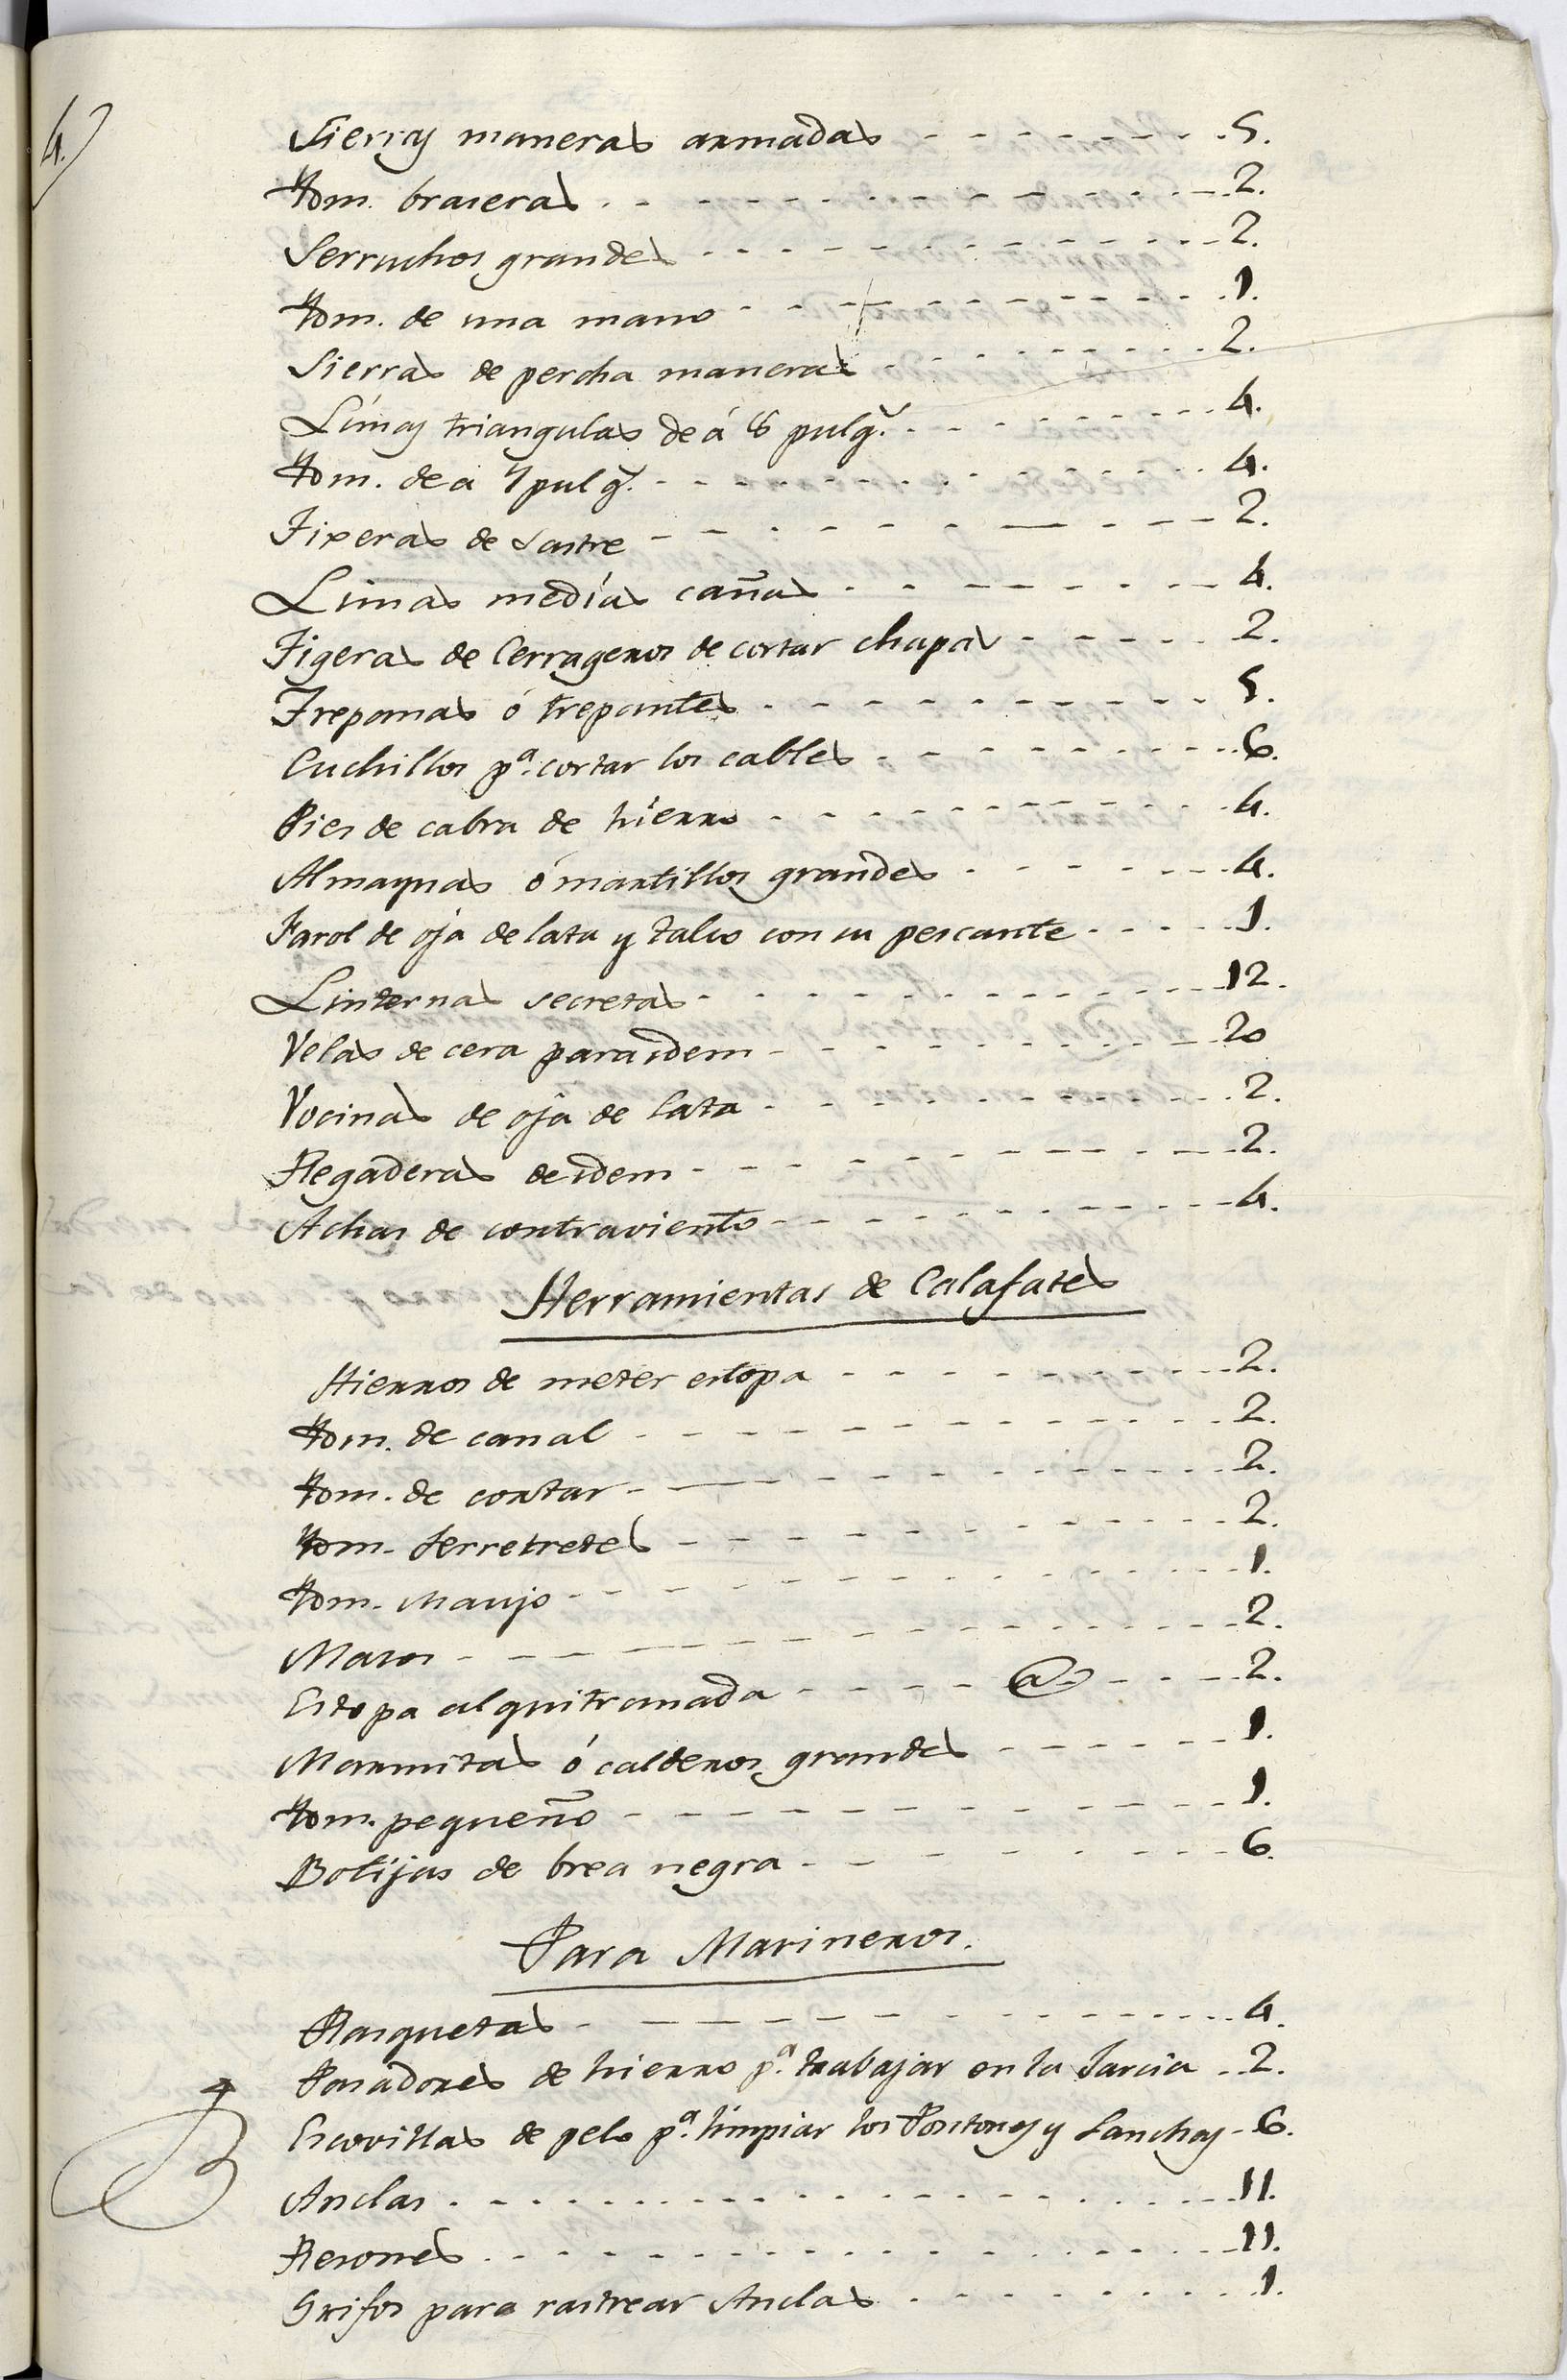 4.
Sierras maneras armadas - - - - - - - - 5.
Ydm. braseras - - - - - - - - - - 2.
Serruchos grandes - - - - - - - - - - 2.
Ydm. de una mano - - - - - - - - - - 1.
Sierras de percha maneras - - - - - - - - 2.
Limas triangulas de á 8 pulgs. - - - - - - - 4.
Ydm. de a 7 pulgs. - - - - - - - - - - 4.
Tixeras de Sastre - - - - - - - - - - 2.
Limas medías cañas - - - - - - - - 4.
Tigeras de Cerrageros de cortar chapas - - - - - 2.
Trepanas ó trepantes - - - - - - - - - 5.
Cuchillos pa. cortar los cables - - - - - - - - 6.
Pies de cabra de hierro - - - - - - - - - - 4.
Almaynas ó martillos grandes - - - - - - - 4.
Farol de oja de lata y talco con su pescante - - - - - 1.
Linternas secretas - - - - - - - - - - 12.
Velas de cera para idem - - - - - - - - - 20
Vocinas de oja de lata - - - - - - - - - - 2.
Regaderas de idem - - - - - - - - - - 2.
Achas de contraviento - - - - - - - - - - 4.
Herramientas de Calafates
Hierros de meter estopa - - - - - - - - - 2.
Ydm. de canal - - - - - - - - - - 2.
Ydm. de cortar - - - - - - - - - - 2.
Ydm. Ferretretes - - - - - - - - - - 2.
Ydm. Maujo - - - - - - - - - - 1.
Masos - - - - - - - - - - 2.
Estopa alquitranada - - - - @. - - - - 2.
Marmitas ó calderos grandes - - - - - - 1.
Ydm. pequeño - - - - - - - - - - 1.
Botijas de brea negra - - - - - - - - - 6.
Para Marineros.
Rasquetas - - - - - - - - - - 4.
Pasadores de hierro pa. trabajar en la Jarcia - - 2.
Escovillas de pelo pa. limpiar los Pontones y Lanchas - 6.
Anclas - - - - - - - - - - 11.
Resones - - - - - - - - - - 11.
Grifos para rastrear Anclas - - - - - - - - 1.